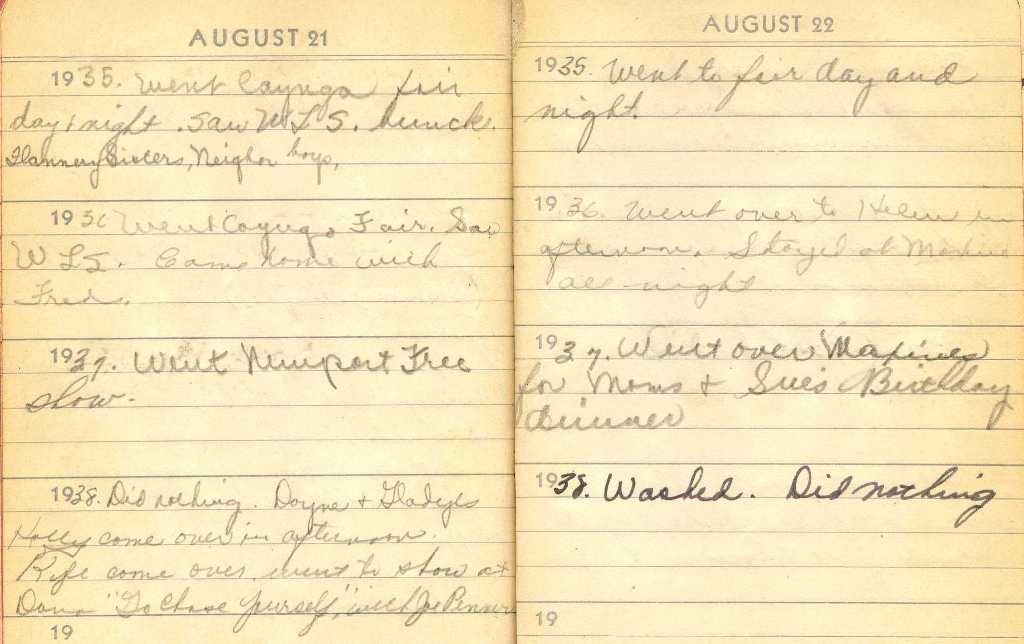 AUGUST 21
1935. Went Cayuga fair
day & night. Saw W L S. bunck.
Flannery Sisters, Neighor boys,
1936 Went Cayuga Fair. Saw
W L S. Came home with
Freds.
1937. Went Newport Free
show.
1938. Did nothing. Doyne & Gladyls
Holly come over in afternoon.
Kyle come over, went to show at
Dana "Go Chase Yurself," with Joe Penner
19
AUGUST 22
1935. Went to fair day and
night.
1936. Went over to Helen in
afternoon. Stayed at Maxine
all night
1937. Went over Maxines
for Moms & Sues Birthday
dinner
1938. Washed. Did nothing
19